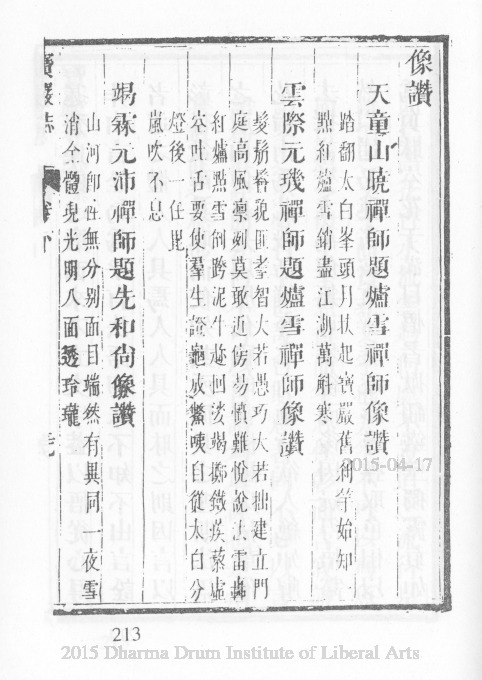 像讚
天童山曉禪師題爐雪禪師像讚
踏翻太白峯頭月扶起寶嚴舊刹竿始知一
點紅爐雪銷盡江湖萬斛寒
雲際元璣禪師題爐雪禪師像讚
髮鬅眷貌匪耄智大若愚巧大若拙建立門
庭高風凛冽莫敢近傍易慎難悅說法雷轟
紅爐點雪倒跨泥牛趂回娑竭擲鐵蒺藜虛
空吐舌要使羣生證龜成鱉咦自從太白分
燈後一任毘
嵐吹不忌
竭霖元沛禪師題先和尚像讚
山河卽性無分别面目端然有異同一夜雪
消全體現光明八面透玲瓏
寶嚴志
2015-04-17
213
2015 Dharma Drum Institute of Liberal Arts